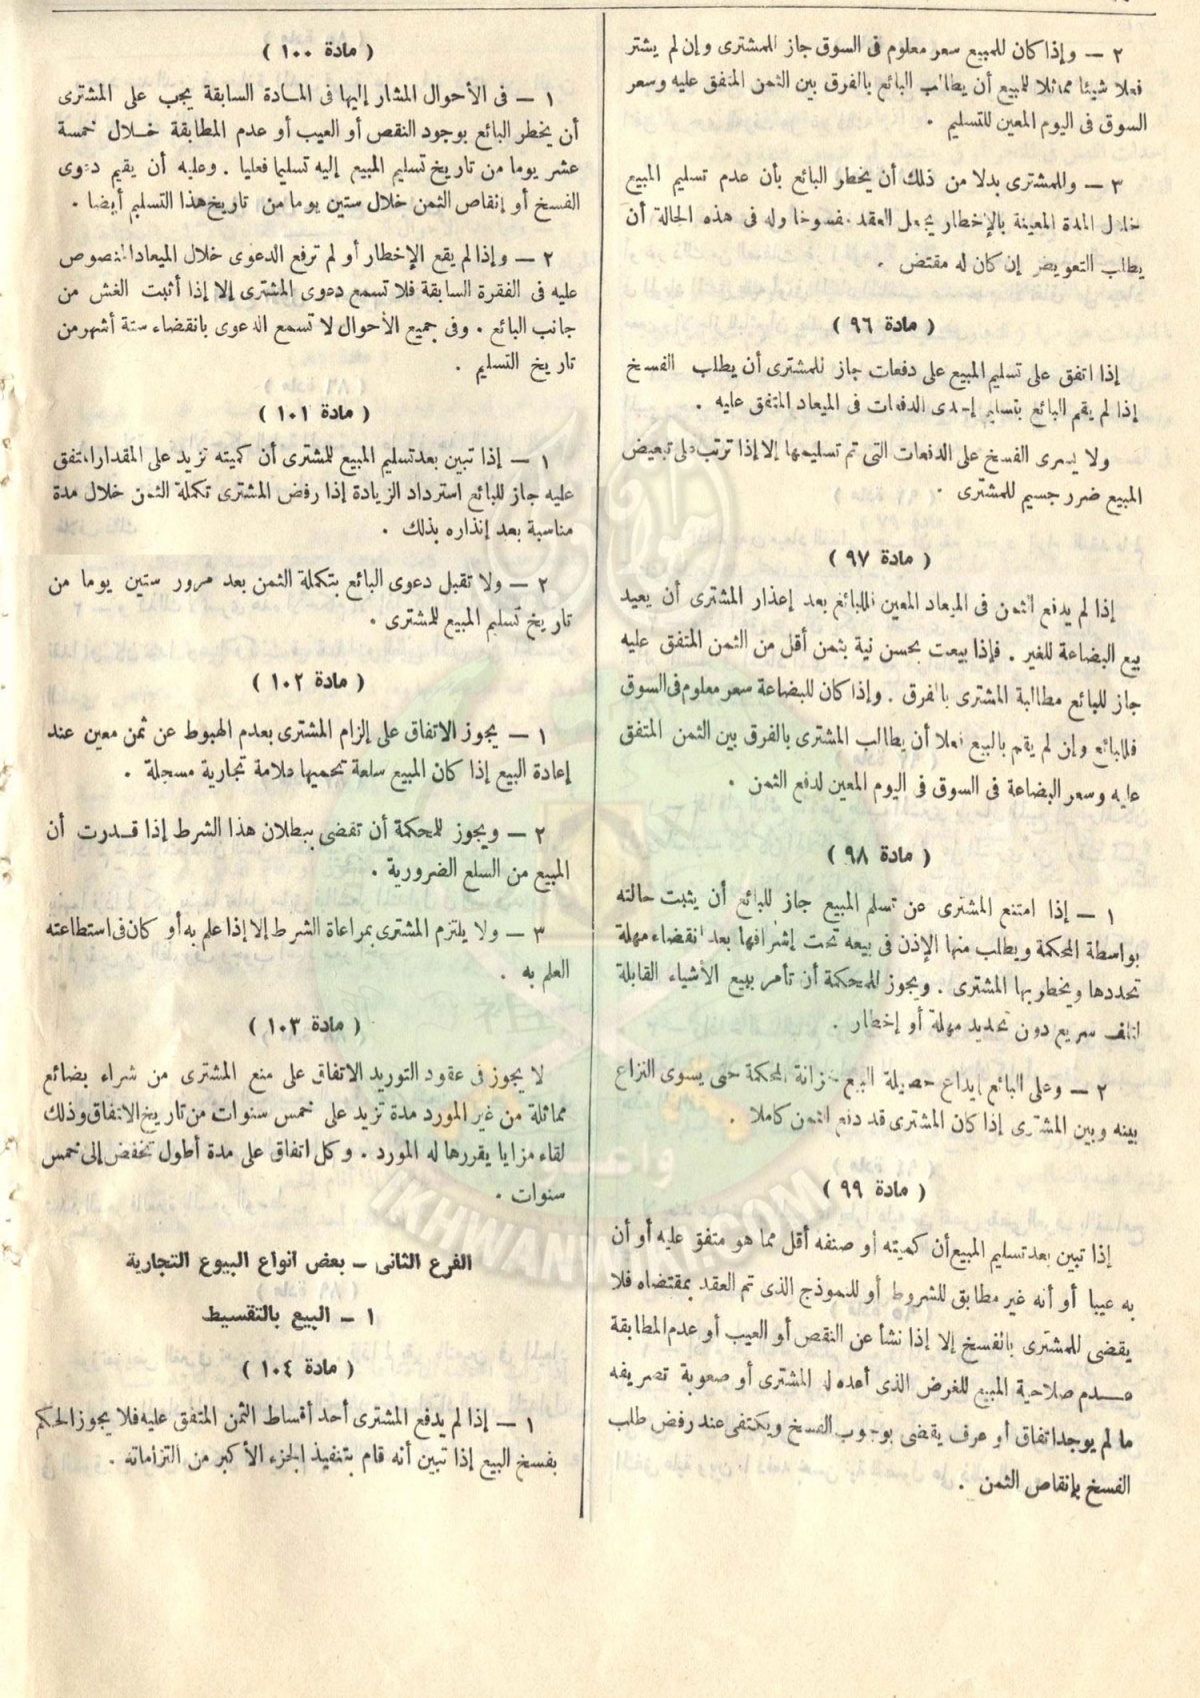 ٢ — وإذا كان للمبيع سعر معلوم فى السوق جاز للمشترى وإن لم يشتر
فعلا شيئا مماثلا للمبيع أن يطالب البائع بالفرق بين الثمن المتفق عليه وسعر
السوق فى اليوم المعين للتسليم .
٣ — وللمشترى بدلا من ذلك أن يخطر البائع بأن عدم تسليم المبيع
خلال المدة المعينة بالإخطار يجعل العقد مفسوخا وله فى هذه الحالة أن
يطلب التعويض إن كان له مقتض .
( مادة ٩٦ )
إذا اتفق على تسليم المبيع على دفعات جاز للمشترى أن يطلب الفسخ
إذا لم يقم البائع بتسليم إحدى الدفعات فى الميعاد المتفق عليه .
ولا يسرى الفسخ على الدفعات التى تم تسليمها إلا إذا ترتب على تبعيض
المبيع ضرر جسيم للمشترى .
( مادة ٩٧ )
إذا لم يدفع الثمن فى الميعاد المعين فللبائع بعد إعذار المشترى أن يعيد
بيع البضاعة للغير . فإذا بيعت بحسن نية بثمن أقل من الثمن المتفق عليه
جاز للبائع مطالبة المشترى بالفرق . وإذا كان للبضاعة سعر معلوم فى السوق
فللبائع وإن لم يقم بالبيع فعلا أن يطالب المشترى بالفرق بين الثمن المتفق
عليه وسعر البضاعة فى السوق فى اليوم المعين لدفع الثمن .
( مادة ٩٨ )
١ — إذا امتنع المشترى عن تسلم المبيع جاز للبائع أن يثبت حالته
بواسطة المحكمة ويطلب منها الإذن فى بيعه تحت إشرافها بعد انقضاء مهلة
تحددها ويخطر بها المشترى . ويجوز للمحكمة أن تأمر ببيع الأشياء القابلة
لتلف سريع دون تحديد مهلة أو إخطار .
٢ — وعلى البائع إيداع حصيلة البيع خزانة المحكمة حتى يسوى النزاع
بينه وبين المشترى إذا كان المشترى قد دفع الثمن كاملا .
( مادة ٩٩ )
إذا تبين بعد تسليم المبيع أن كميته أو صنفه أقل مما هو متفق عليه أو أن
به عيبا أو أنه غير مطابق للشروط أو للنموذج الذى تم العقد بمقتضاه فلا
يقضى للمشترى بالفسخ إلا إذا نشأ عن النقص أو العيب أو عدم المطابقة
عدم صلاحية المبيع للغرض الذى أعده له المشترى أو صعوبة تصريفه
ما لم يوجد اتفاق أو عرف يقضى بوجوب الفسخ ويكتفى عند رفض طلب
الفسخ بإنقاص الثمن .
( مادة ١٠٠ )
١ — فى الأحوال المشار إليها فى المادة السابقة يجب على المشترى
أن يخطر البائع بوجود النقص أو العيب أو عدم المطابقة خلال خمسة
عشر يوما من تاريخ تسليم المبيع إليه تسليما فعليا . وعليه أن يقيم دعوى
الفسخ أو إنقاص الثمن خلال ستين يوما من تاريخ هذا التسليم أيضا .
٢ — وإذا لم يقع الإخطار أو لم ترفع الدعوى خلال الميعاد المنصوص
عليه فى الفقرة السابقة فلا تسمع دعوى المشترى إلا إذا أثبت الغش من
جانب البائع . وفى جميع الأحوال لا تسمع الدعوى بانقضاء ستة أشهر من
تاريخ التسليم .
( مادة ١٠١ )
١ — إذا تبين بعد تسليم المبيع للمشترى أن كميته تزيد على المقدار المتفق
عليه جاز للبائع استرداد الزيادة إذا رفض المشترى تكملة الثمن خلال مدة
مناسبة بعد إنذاره بذلك .
٢ — ولا تقبل دعوى البائع بتكملة الثمن بعد مرور ستين يوما من
تاريخ تسليم المبيع للمشترى .
( مادة ١٠٢ )
١ — يجوز الاتفاق على إلزام المشترى بعدم الهبوط عن ثمن معين عند
إعادة البيع إذا كان المبيع سلعة تحميها علامة تجارية مسجلة .
٢ — ويجوز للمحكمة أن تقضى ببطلان هذا الشرط إذا قدرت أن
المبيع من السلع الضرورية .
٣ — ولا يلتزم المشترى بمراعاة الشرط إلا إذا علم به أو كان فى استطاعته
العلم به .
( مادة ١٠٣ )
لا يجوز فى عقود التوريد الاتفاق على منع المشترى من شراء بضائع
مماثلة من غير المورد مدة تزيد على خمس سنوات من تاريخ الاتفاق وذلك
لقاء مزايا يقررها له المورد . وكل اتفاق على مدة أطول تخفض إلى خمس
سنوات .
الفرع الثانى — بعض انواع البيوع التجارية
١ — البيع بالتقسيط
( مادة ١٠٤ )
١ — إذا لم يدفع المشترى أحد أقساط الثمن المتفق عليه فلا يجوز الحكم
بفسخ البيع إذا تبين أنه قام بتنفيذ الجزء الأكبر من التزاماته .